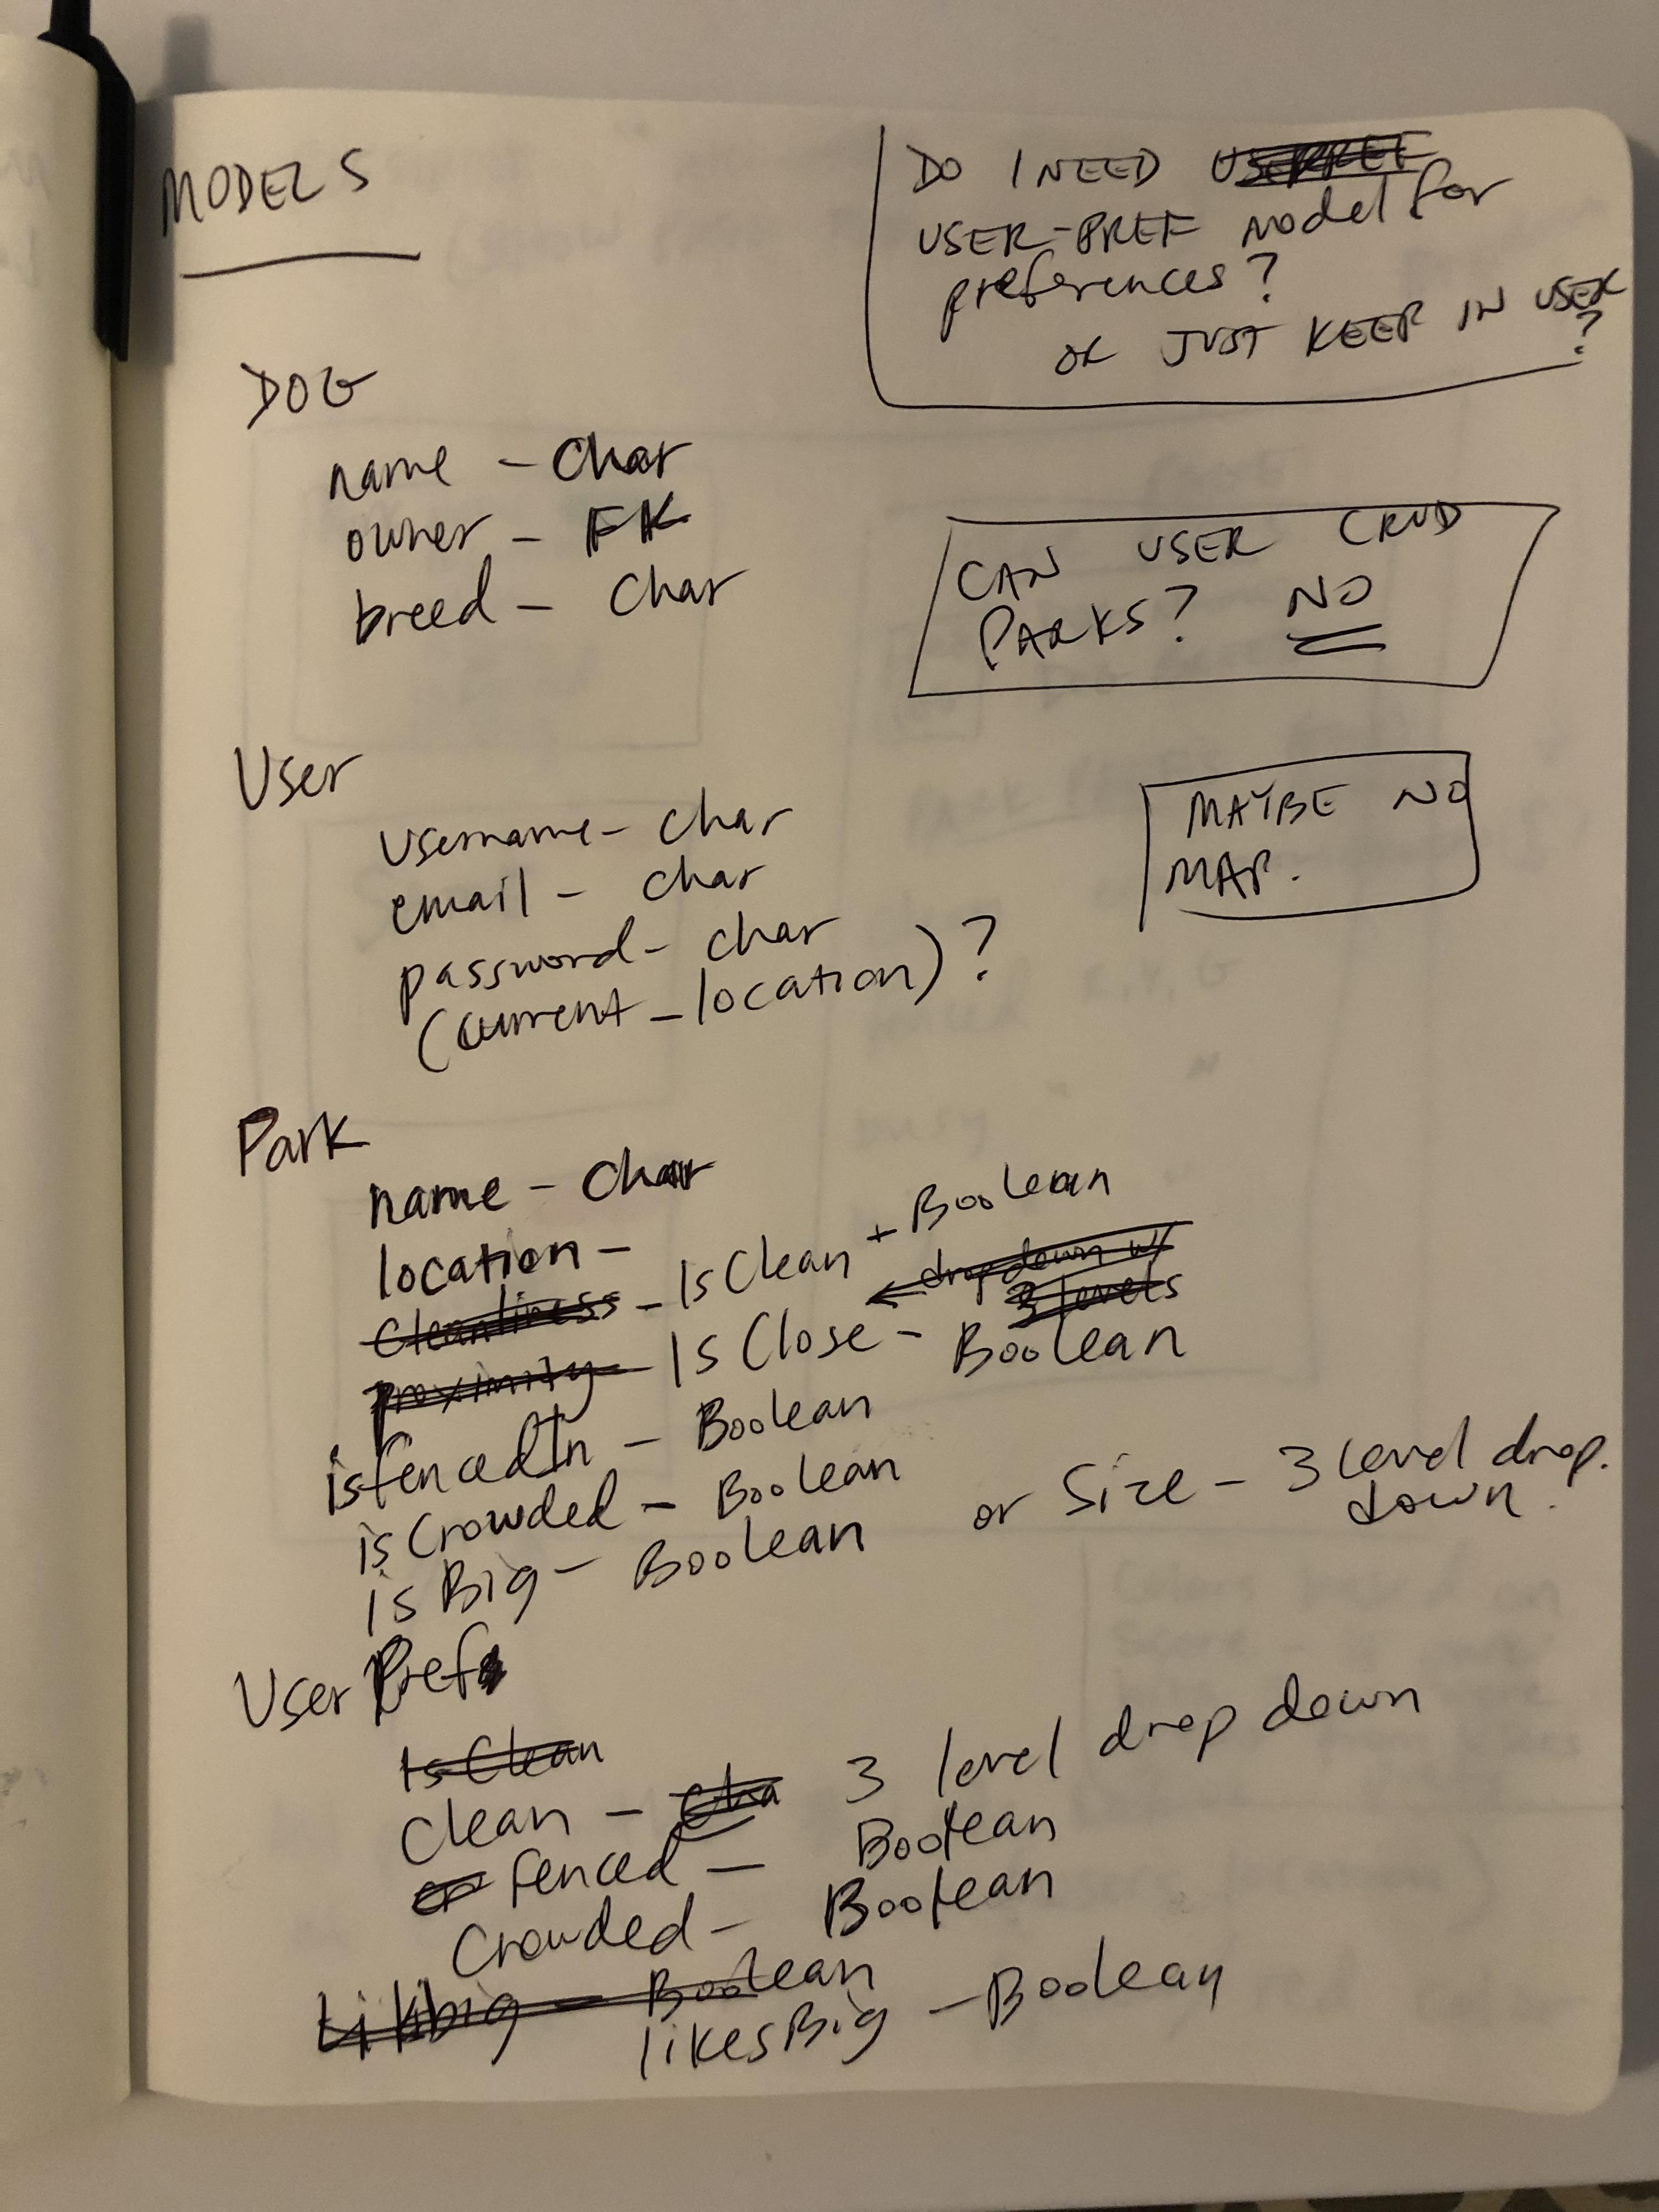 MODELS
DO I NEED USERPREF
USER-PREF model for
preferences?
OR JUST KEEP IN USER
?
DOG
name - Char
owner - FK
breed - Char
CAN USER CRUD
PARKS? NO
User
username - char
email - char
password - char
(current_location)?
MAYBE NO
MAP.
Park
name - Char
location -
Cleanliness - Is Clean + Boolean
← dropdown w/
3 levels
Proximity - Is Close - Boolean
isfencedIn - Boolean
is Crowded - Boolean
is Big - Boolean or Size - 3 level drop.
down.
User Pref
Is Clean
Clean - Cha 3 level drop down
fenced - Boolean
Crowded - Boolean
big - Boolean
likesBig - Boolean